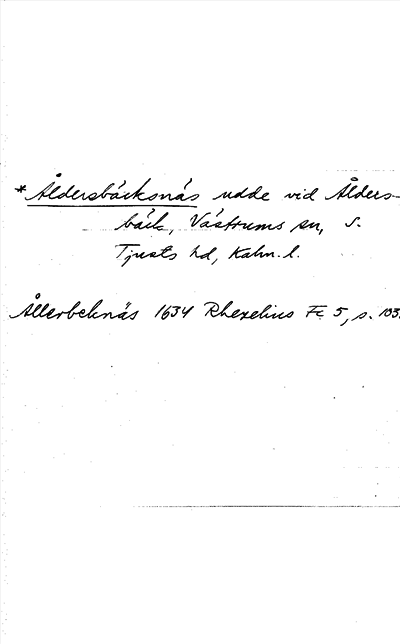 * Åldersbäcksnäs udde vid Ålders-
bäck, Västrums sn, S.
Tjusts hd, Kalm. l.
Ållerbeknäs 1634 Rhezelius Fc 5, s. 103.